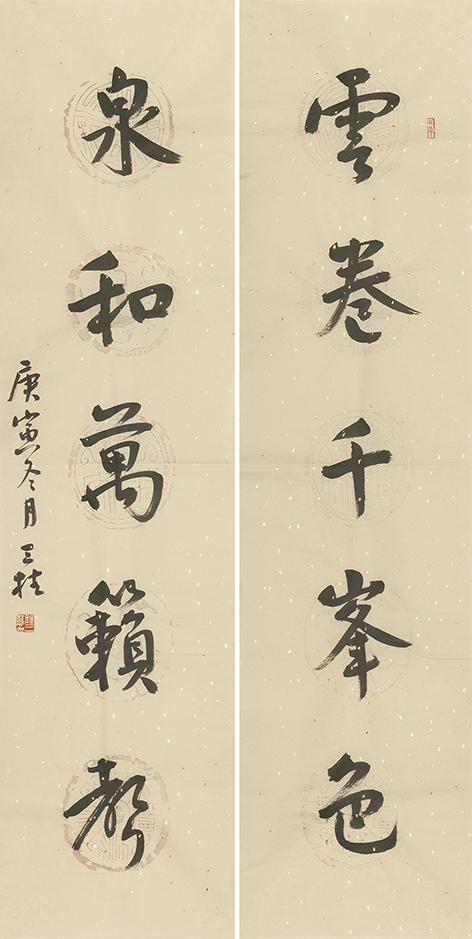 雲卷千峯色
泉和萬籟聲
庚寅冬月